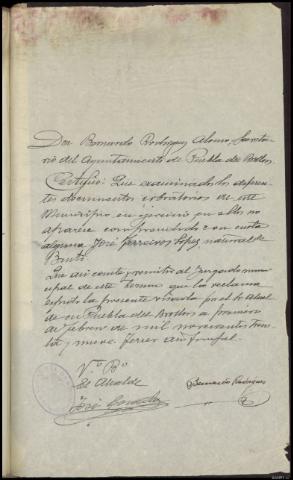 Don Bernardo Rodriguez Alonso, Secreta-
rio del Ayuntamiento de Puebla del Brollon
Certifico: Que examinados los diferen-
tes documentos cobratorios de este
Municipio en ejercicio en ellos no
aparece comprendido con cuota
alguna José Ferreiros López natural de
Que asi consta y remitir al Juzgado muni-
cipal de este Termino que lo reclama
expido la presente visada por el Sr Alcalde
de en Puebla del Brollon a primero
de febrero de mil novecientos trein-
ta y nueve. Tercer año Triunfal.
Vº. Bº
El Alcalde
José González
Bernardo Rodriguez